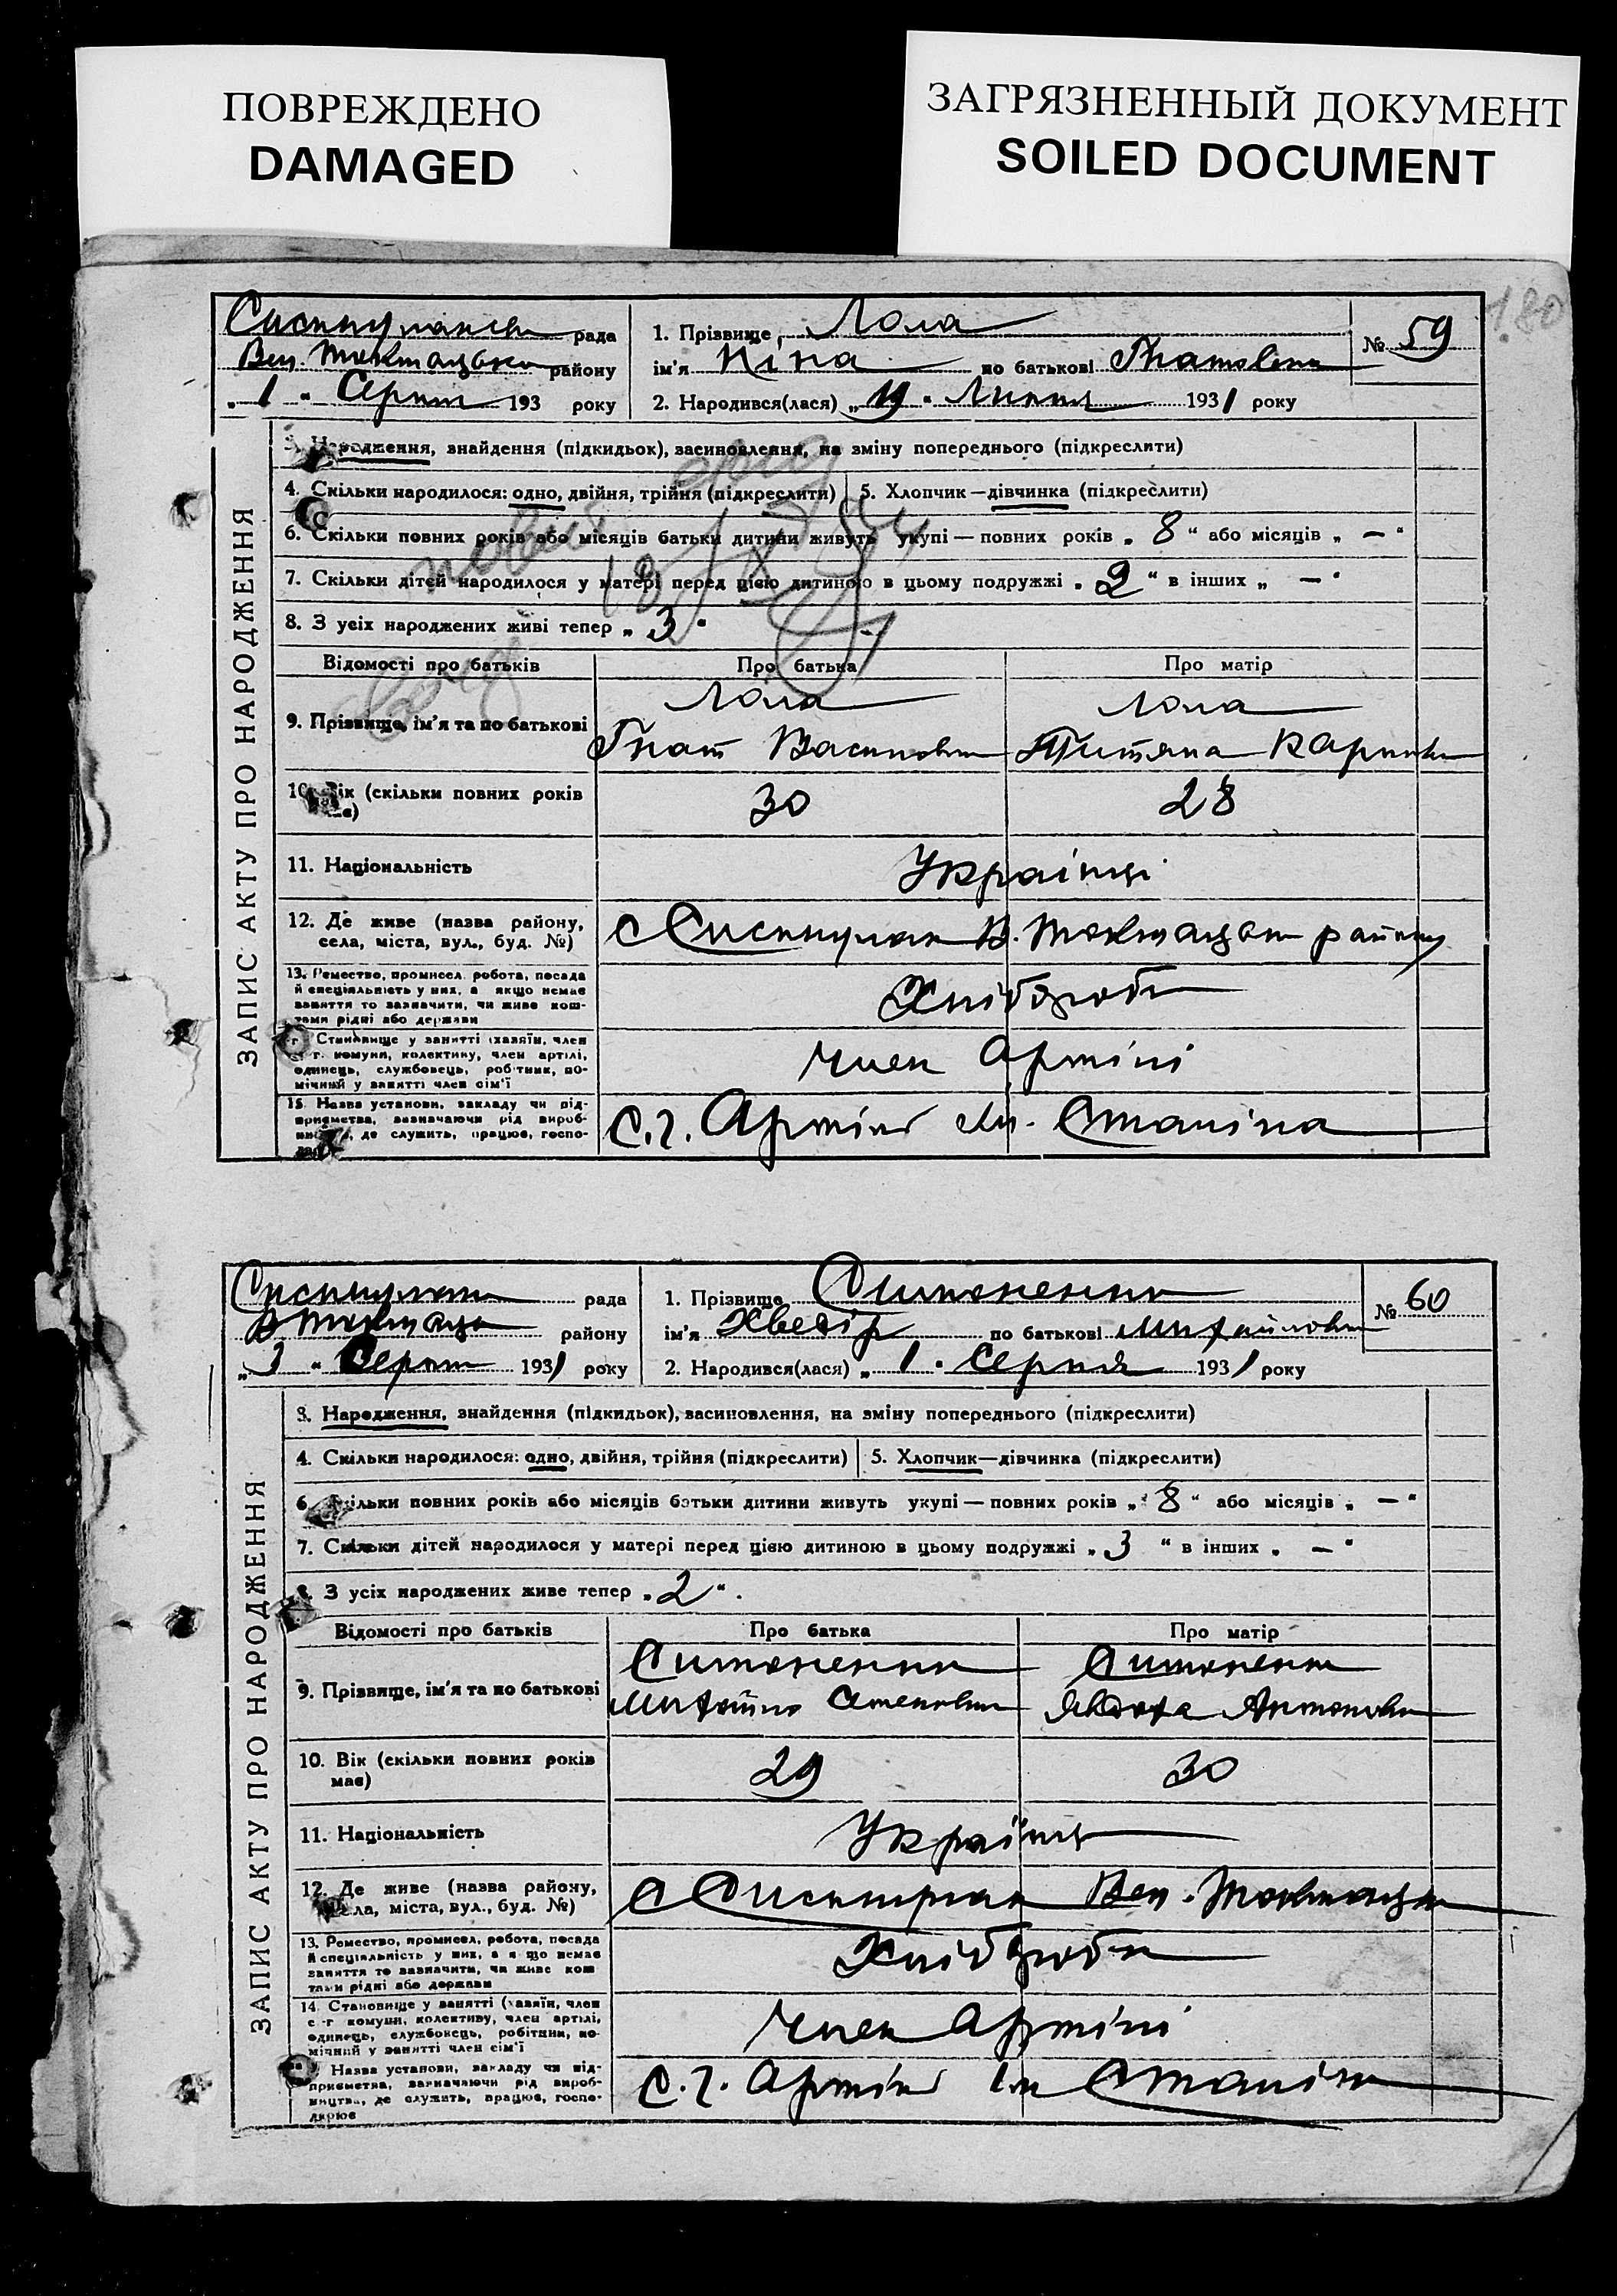 ПОВРЕЖДЕНО
DAMAGED
ЗАГРЯЗНЕННЫЙ ДОКУМЕНТ
SOILED DOCUMENT
180
ЗАПИС АКТУ ПРО НАРОДЖЕННЯ
рада
Вел. Токмацького району
"1" Серпня 193 року
1. Прізвище Лола
ім'я Ніна по батькові Гнатовна
2. Народився(лася) "19" Липня 1931 року
№ 59
3. Народження, знайдення (підкидьок), засиновлення, на зміну попереднього (підкреслити)
4. Скільки народилося: одно, двійня, трійня (підкреслити) 5. Хлопчик—дівчинка (підкреслити)
6. Скільки повних років або місяців батьки дитини живуть укупі — повних років "8" або місяців "—"
7. Скільки дітей народилося у матері перед цією дитиною в цьому подружжі "2" в інших "—"
8. З усіх народжених живі тепер "3"
Відомості про батьків Про батька Про матір
9. Прізвище, ім'я та по батькові
Лола Лола
Гнат Василович
10. Вік (скільки повних років має) 30 28
11. Національність Українці
12. Де живе (назва району,
села, міста, вул., буд. №)
В. Токмацьк району
13. Ремество, промисел, робота, посада
й спеціяльність у них, а якщо немає
заняття то зазначити, чи живе кош-
тами рідні або держави
Хлібороби
Становище у занятті (хазяїн, член
с.-г. комуни, колективу, член артілі,
одинець, службовець, робітник, по-
мічний у занятті член сім'ї
член Артілі
15. Назва установи, закладу чи під-
приємства, зазначаючи рід вироб-
ництва, де служить, працює, госпо-
дарює
С.г. Артіль ім. Сталіна
ЗАПИС АКТУ ПРО НАРОДЖЕННЯ
рада
В Токмацьк району
"3" Серпня 1931 року
1. Прізвище Симоненко
ім'я Хведір по батькові Михайлович
2. Народився(лася) "1" Серпня 1931 року
№ 60
3. Народження, знайдення (підкидьок), засиновлення, на зміну попереднього (підкреслити)
4. Скільки народилося: одно, двійня, трійня (підкреслити) 5. Хлопчик—дівчинка (підкреслити)
6. Скільки повних років або місяців батьки дитини живуть укупі — повних років "8" або місяців "—"
7. Скільки дітей народилося у матері перед цією дитиною в цьому подружжі "3" в інших "—"
8. З усіх народжених живе тепер "2".
Відомості про батьків Про батька Про матір
9. Прізвище, ім'я та по батькові
Симоненко Симоненко
Михайло Семенович Явдоха Антоновна
10. Вік (скільки повних років
має) 29 30
11. Національність Українці
12. Де живе (назва району,
села, міста, вул., буд. №)
Вел. Токмацьк
13. Ремество, промисел, робота, посада
й спеціяльність у них, а якщо немає
заняття то зазначити, чи живе кош
тами рідні або держави
Хлібороби
14. Становище у занятті (хазяїн, член
с.-г комуни, колективу, член артілі,
одинець, службовець, робітник, по-
мічний у занятті член сім'ї
член Артілі
Назва установи, закладу чи під-
приємства, зазначаючи рід вироб-
ництва, де служить, працює, госпо-
дарює
С.г. Артіль ім Сталіна